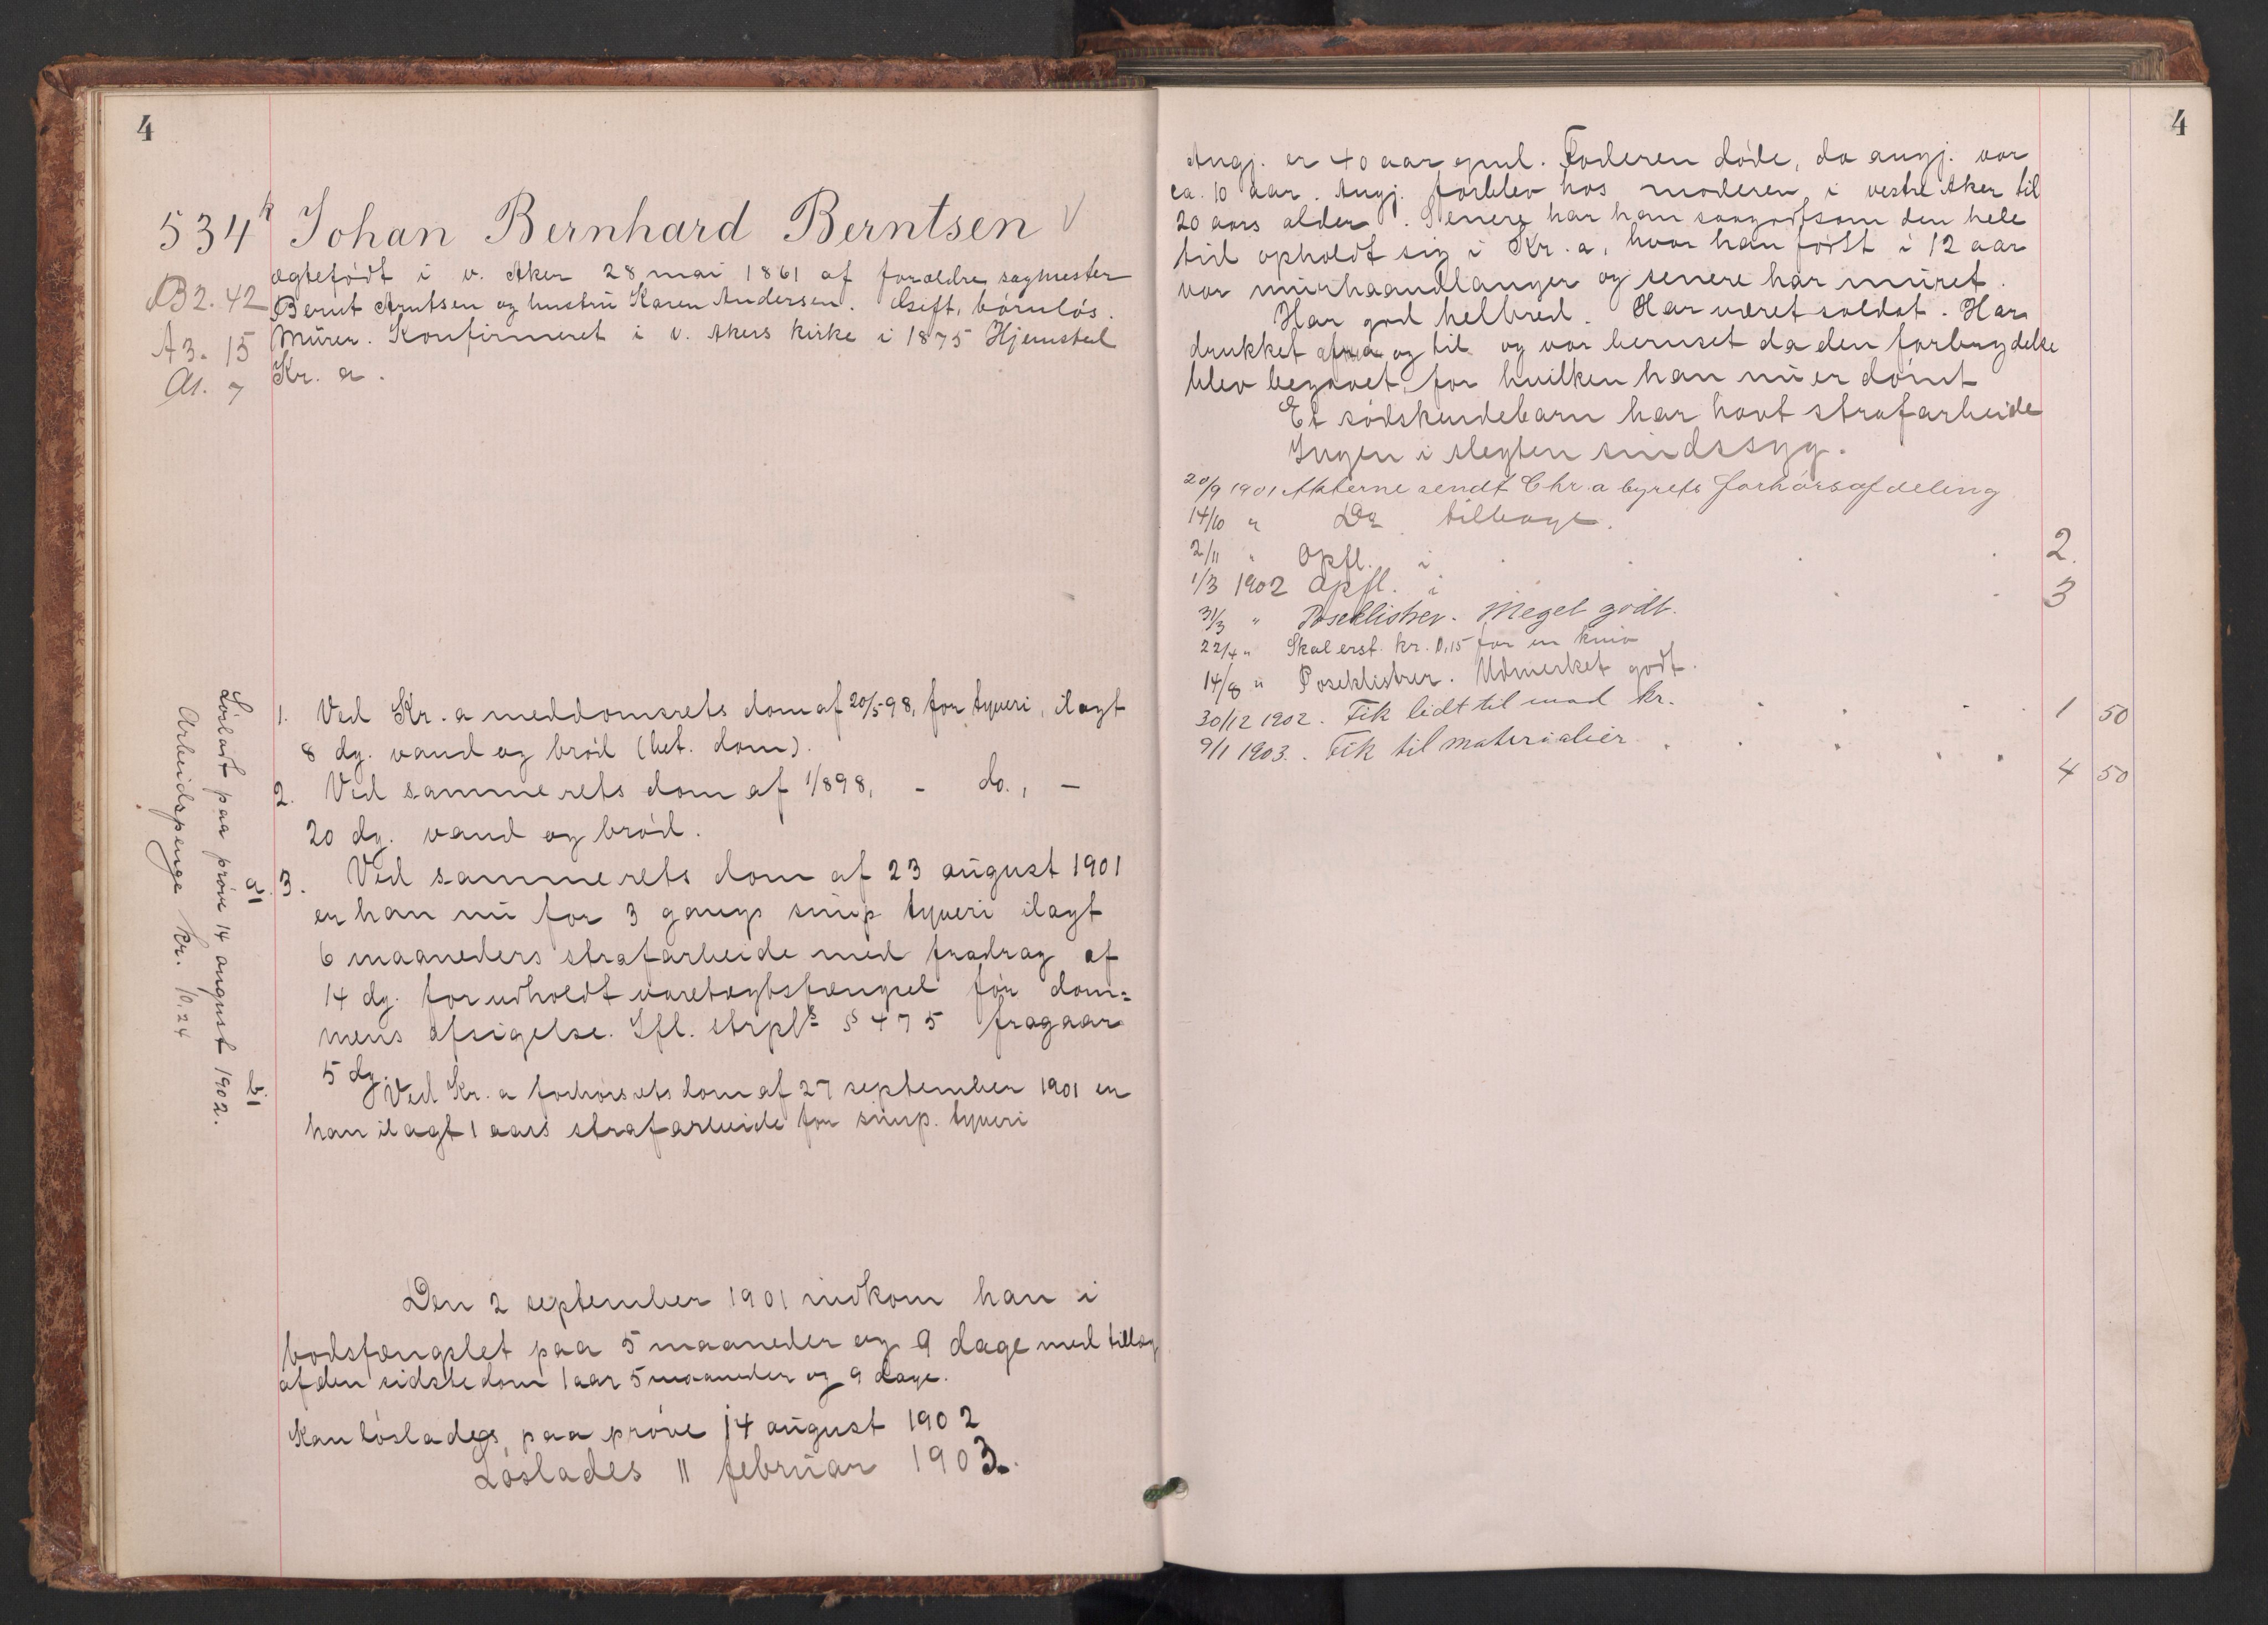 4
534
Johan Bernhard Berntsen
ægtefødt i v. Aker 28 mai 1861 af forældre sagmester
B2. 42
Bernt Arntsen og hustru Karen Andersen. Gift, børnløs.
A3. 15
Murer. Konfirmeret i v. Akers kirke i 1875 Hjemsted
A1. 7
Kr. a.
1. Ved Kr. a meddomsrets dom af 20/5 98, for tyveri, ilagt
8 dg. vand og brød (bet. dom).
2. Ved samme rets dom af 1/8 98, - do., -
20 dg. vand og brød.
a. 3. Ved samme rets dom af 23 august 1901
er han nu for 3 gangs simp tyveri ilagt
6 maaneders strafarbeide med fradrag af
14 dg. for udholdt varetægtsfængsel før dom=
mens afsigelse. Ifl. strpls § 475 fragaar
5 dg.
b. Ved Kr. a forhørsrets dom af 27 september 1901 er
han ilagt 1 aars strafarbeide for simp. tyveri
Løsladt paa prøve 14 august 1902.
Arbeidspenge kr. 10,24
Den 2 september 1901 indkom han i
bodsfængslet paa 5 maaneder og 9 dage med tillæg
af den sidste dom 1 aar 5 maaneder og 9 dage.
Kan løslades paa prøve 14 august 1902
Løslades 11 februar 1903.
4
Angj. er 40 aar gml. Faderen døde, da angj. var
ca. 10 aar. Angj. forblev hos moderen i vestre Aker til
20 aars alder. Senere har han saagodtsom den hele
tid opholdt sig i Kr. a, hvor han først i 12 aar
var murhaandlanger og senere har muret.
Har god helbred. Har været soldat. Har
drukket af og til og var beruset da den forbrydelse
blev begaaet, for hvilken han nu er dømt
Et sødskendebarn har havt strafarbeide
Ingen i slegten sindssyg.
20/9 1901 Akterne sendt Chr.a byrets forhørsafdeling
14/10 " Do tilbage.
2/11 " Opfl. i . . . 2.
1/3 1902 Opfl. i . . 3
31/3 " Poseklistrer. Meget godt.
22/4 " Skal erst. kr. 0,15 for en kniv
14/8 " Poseklistrer. Udmerket godt.
30/12 1902. Fik lidt til mad kr. . . . 1 50
9/1 1903. Fik til materialier . . . . 4 50